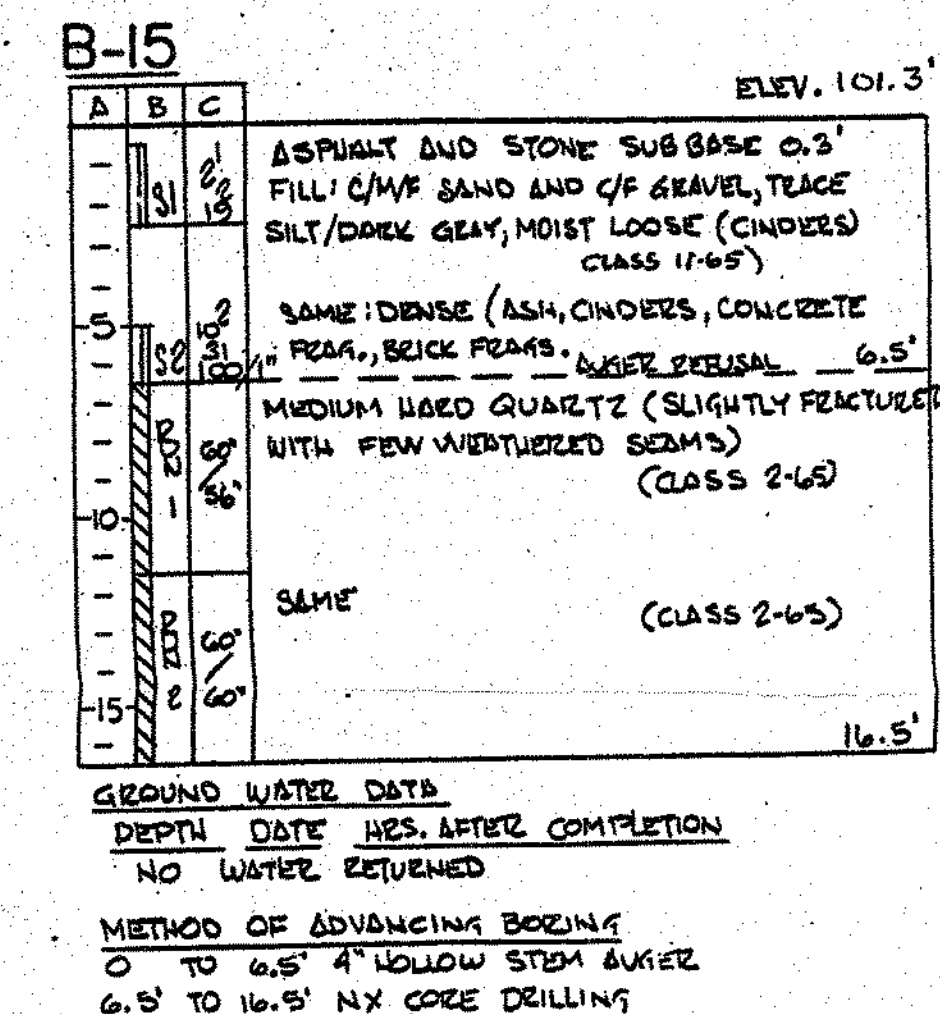 B-15
ELEV. 101.3'
A B C
ASPHALT AND STONE SUBBASE 0.3'
FILL: C/M/F SAND AND C/F GRAVEL, TRACE
SILT/DARK GRAY, MOIST LOOSE (CINDERS)
CLASS 11-65)
S1
1
2
2
15
5
S2
2
10
31
100/1"
SAME: DENSE (ASH, CINDERS, CONCRETE
FRAG., BRICK FRAGS.
AUGER REFUSAL 6.5'
MEDIUM HARD QUARTZ (SLIGHTLY FRACTURED
WITH FEW WEATHERED SEAMS)
(CLASS 2-65)
RUN 1
60"/56"
10
SAME
(CLASS 2-65)
RUN 2
60"/60"
15
16.5'
GROUND WATER DATA
DEPTH DATE HRS. AFTER COMPLETION
NO WATER RETURNED
METHOD OF ADVANCING BORING
0 TO 6.5' 4" HOLLOW STEM AUGER
6.5' TO 16.5' NX CORE DRILLING